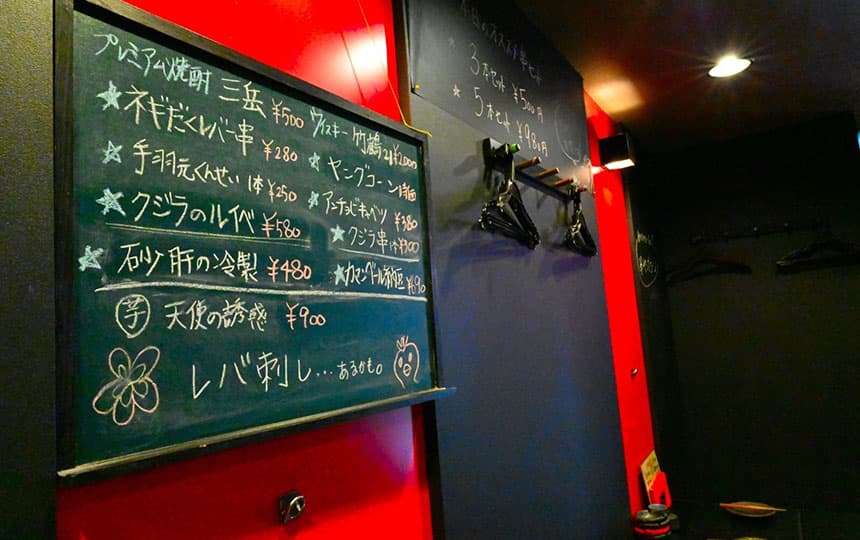 プレミアム焼酎 三岳 ¥500
★ネギだくレバー串 ¥280
★手羽元くんせい 1本 ¥250
★クジラのルイベ ¥580
★砂肝の冷製 ¥480
芋 天使の誘惑 ¥900
レバ刺し…あるかも。
ウィスキー 竹鶴 21 ¥2000
★ヤングコーン 時価
★アンチョビキャベツ ¥380
★クジラ串 1本 ¥300
★カマンベール ¥690
本日のオススメ串セット
★3本セット ¥500円
★5本セット ¥980円